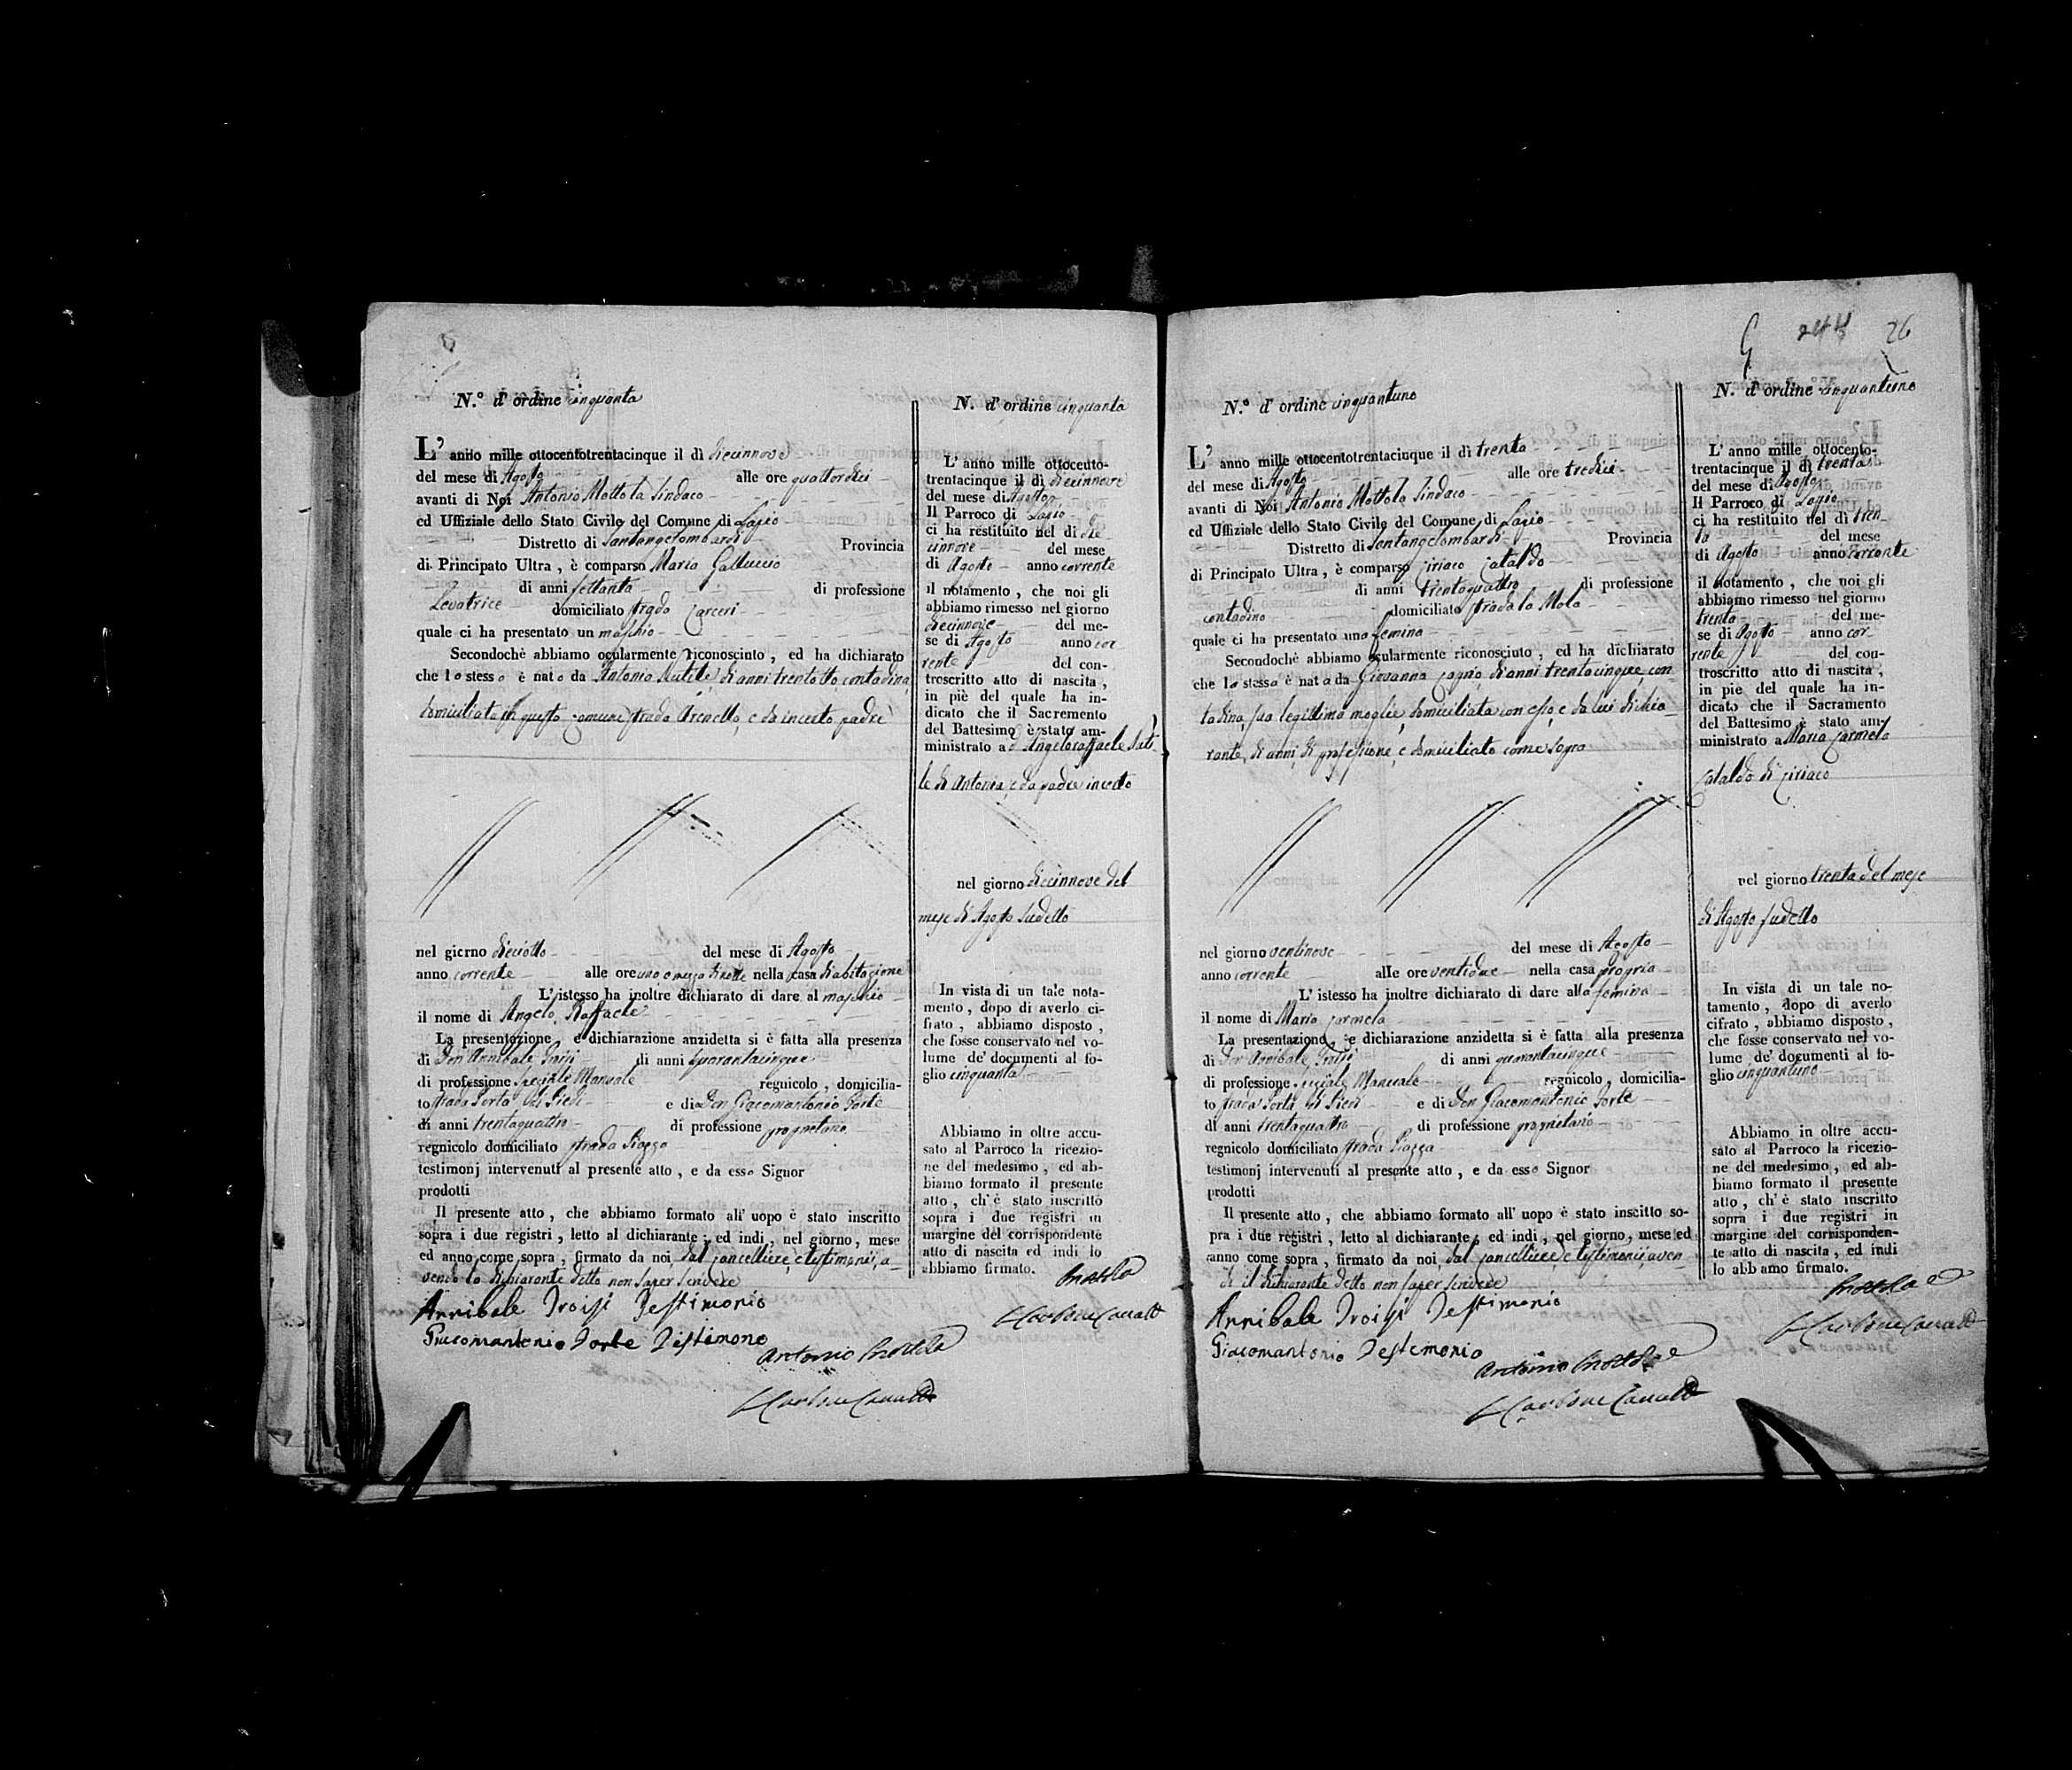 N.º d' ordine cinquanta
L' anno mille ottocentotrentacinque il dì diecinnove
del mese di Agosto alle ore quattordici
avanti di Noi Antonio Mottola Sindaco
ed Uffiziale dello Stato Civile del Comune di Lapio
Distretto di Santangelombardi Provincia
di Principato Ultra, è comparso Maria Galluccio
di anni settanta di professione
Levatrice domiciliato strada Carceri
quale ci ha presentato un maschio
Secondochè abbiamo ocularmente riconosciuto, ed ha dichiarato
che lo stesso è nato da Antonia di anni trentotto, contadina,
domiciliata in questo comune strada Arenella, e da incerto padre
nel giorno dieciotto del mese di Agosto
anno corrente alle ore una e mezza di notte nella casa d'abitazione
L'istesso ha inoltre dichiarato di dare al maschio
il nome di Angelo Raffaele
La presentazione, e dichiarazione anzidetta si è fatta alla presenza
di Don Annibale Troisi di anni quarantacinque
di professione speziale Manuale regnicolo, domicilia-
to strada Porta di Piedi e di Don Giacomantonio Forte
di anni trentaquattro di professione proprietario
regnicolo domiciliato strada Piazza
testimonj intervenuti al presente atto, e da esso Signor
prodotti
Il presente atto, che abbiamo formato all' uopo è stato inscritto
sopra i due registri, letto al dichiarante; ed indi, nel giorno, mese
ed anno come sopra, firmato da noi, dal Cancelliere, e testimonii, a-
vendo la dichiarante detto non saper scrivere
Annibale Troisi Testimonio
Giacomantonio Forte Testimone
Antonio Mottola
N. d' ordine cinquanta
L' anno mille ottocento-
trentacinque il dì diecinnove
del mese di Agosto
Il Parroco di Lapio
ci ha restituito nel dì die-
cinnove del mese
di Agosto anno corrente
il notamento, che noi gli
abbiamo rimesso nel giorno
diecinnove del me-
se di Agosto anno cor
rente del con-
troscritto atto di nascita,
in piè del quale ha in-
dicato che il Sacremento
del Battesimo è stato am-
ministrato a Angeloraffaele
di Antonia, e da padre incerto
nel giorno diecinnove del
mese di Agosto sudetto
In vista di un tale nota-
mento, dopo di averlo ci-
frato, abbiamo disposto,
che fosse conservato nel vo-
lume de' documenti al fo-
glio cinquanta
Abbiamo in oltre accu-
sato al Parroco la ricezio-
ne del medesimo, ed ab-
biamo formato il presente
atto, ch'è stato inscritto
sopra i due registri in
margine del corrispondente
atto di nascita ed indi lo
abbiamo firmato.
Mottola
26
N.º d' ordine cinquantuno
L' anno mille ottocentotrentacinque il dì trenta
del mese di Agosto alle ore tredici
avanti di Noi Antonio Mottola Sindaco
ed Uffiziale dello Stato Civile del Comune di Lapio
Distretto di Santangelombardi Provincia
di Principato Ultra, è comparso Ciriaco Cataldo
di anni trentaquattro di professione
contadino domiciliato strada la Mola
quale ci ha presentato una femina
Secondochè abbiamo ocularmente riconosciuto, ed ha dichiarato
che la stessa è nata da Giovanna di anni trentacinque, con
tadina, sua legittima moglie, domiciliata con esso, e da lui dichia-
rante, di anni, di professione, e domiciliato come sopra
nel giorno ventinove del mese di Agosto
anno corrente alle ore ventidue nella casa propria
L' istesso ha inoltre dichiarato di dare alla femina
il nome di Maria Carmela
La presentazione, e dichiarazione anzidetta si è fatta alla presenza
di Don Annibale Troisi di anni quarantacinque
di professione speziale Manuale regnicolo, domicilia-
to strada Porta di Piedi e di Don Giacomantonio Forte
di anni trentaquattro di professione proprietario
regnicolo domiciliato strada Piazza
testimonj intervenuti al presente atto, e da esso Signor
prodotti
Il presente atto, che abbiamo formato all' uopo è stato inscitto so-
pra i due registri, letto al dichiarante; ed indi, nel giorno, mese ed
anno come sopra, firmato da noi, dal Cancelliere e testimonii, aven-
do il dichiarante detto non saper scrivere
Annibale Troisi Testimonio
Giacomantonio Testimonio
Antonio Mottola
N. d' ordine cinquantuno
L' anno mille ottocento-
trentacinque il dì trenta
del mese di Agosto
Il Parroco di Lapio
ci ha restituito nel dì tren-
ta del mese
di Agosto anno corrente
il notamento, che noi gli
abbiamo rimesso nel giorno
trenta del me-
se di Agosto anno cor
rente del con-
troscritto atto di nascita,
in pie del quale ha in-
dicato che il Sacramento
del Battesimo è stato am-
ministrato a Maria Carmela
Cataldo di Ciriaco
nel giorno trenta del mese
di Agosto sudetto
In vista di un tale no-
tamento, dopo di averlo
cifrato, abbiamo disposto,
che fosse conservato nel vo-
lume de' documenti al fo-
glio cinquantuno
Abbiamo in oltre accu-
sato al Parroco la ricezio-
ne del medesimo, ed ab-
biamo formato il presente
atto, ch'è stato inscritto
sopra i due registri in
margine del corrisponden-
te atto di nascita, ed indi
lo abbamo firmato.
Mottola